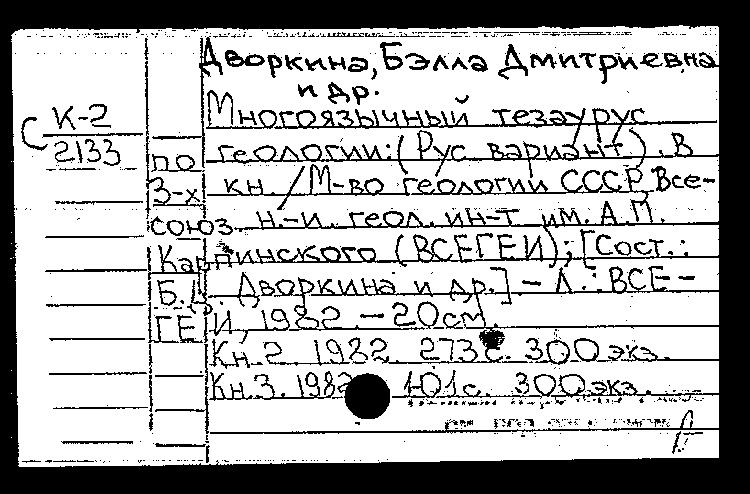 Дворкина, Бэлла Дмитриевна
и др.
С К-2
2133
Многоязычный тезаурус
по геологии: (Рус. вариант). В
3-х кн. / М-во геологии СССР, Все-
союз. н.-и. геол. ин-т им. А.П.
Карпинского (ВСЕГЕИ); [Сост.:
Б.Д. Дворкина и др.] - Л.: ВСЕ-
ГЕИ, 1982. - 20см.
Кн. 2. 1982. 273с. 300экз.
Кн. 3. 1982 101с. 300экз.